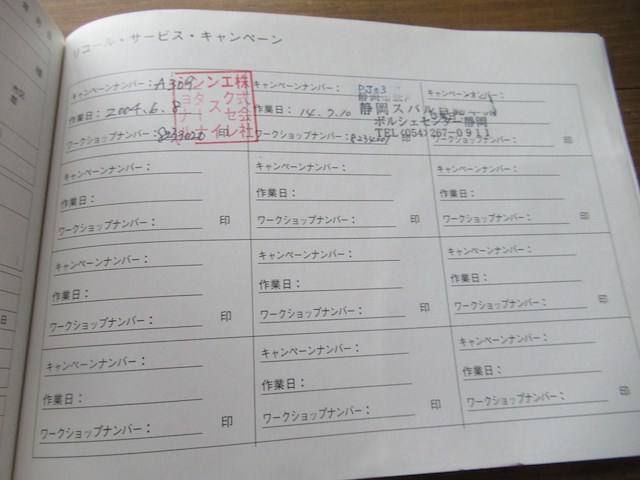 リコール・サービス・キャンペーン
キャンペーンナンバー：A309
作業日：2004.6.8
ワークショップナンバー：8233020 印
株式会社
エクセル
キャンペーンナンバー：
作業日：14.7.10
ワークショップナンバー：8234001
静岡スバル自動車
ポルシェセンター静岡
TEL(054)267-0911
キャンペーンナンバー：
印
キャンペーンナンバー：
作業日：
ワークショップナンバー： 印
キャンペーンナンバー：
作業日：
ワークショップナンバー： 印
キャンペーンナンバー：
作業日：
ワークショップナンバー： 印
キャンペーンナンバー：
作業日：
ワークショップナンバー： 印
キャンペーンナンバー：
作業日：
ワークショップナンバー： 印
キャンペーンナンバー：
作業日：
ワークショップナンバー： 印
キャンペーンナンバー：
作業日：
ワークショップナンバー： 印
キャンペーンナンバー：
作業日：
ワークショップナンバー： 印
キャンペーンナンバー：
作業日：
ワークショップナンバー： 印